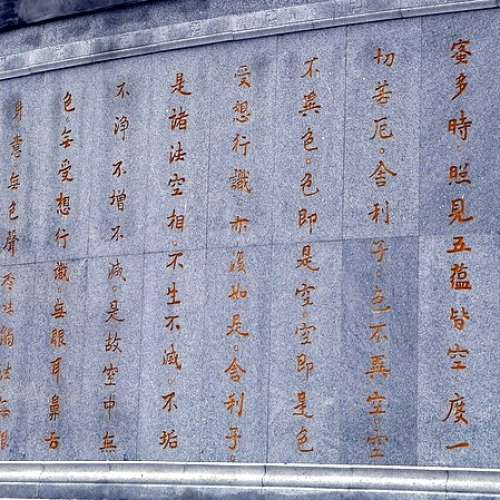 蜜多時。照見五蘊皆空。度一
切苦厄。舍利子。色不異空。空
不異色。色即是空。空即是色
受想行識。亦復如是。舍利子。
是諸法空相。不生不滅。不垢
不淨。不增不減。是故空中無
色。無受想行識。無眼耳鼻舌
身意。無色聲香味觸法。無眼